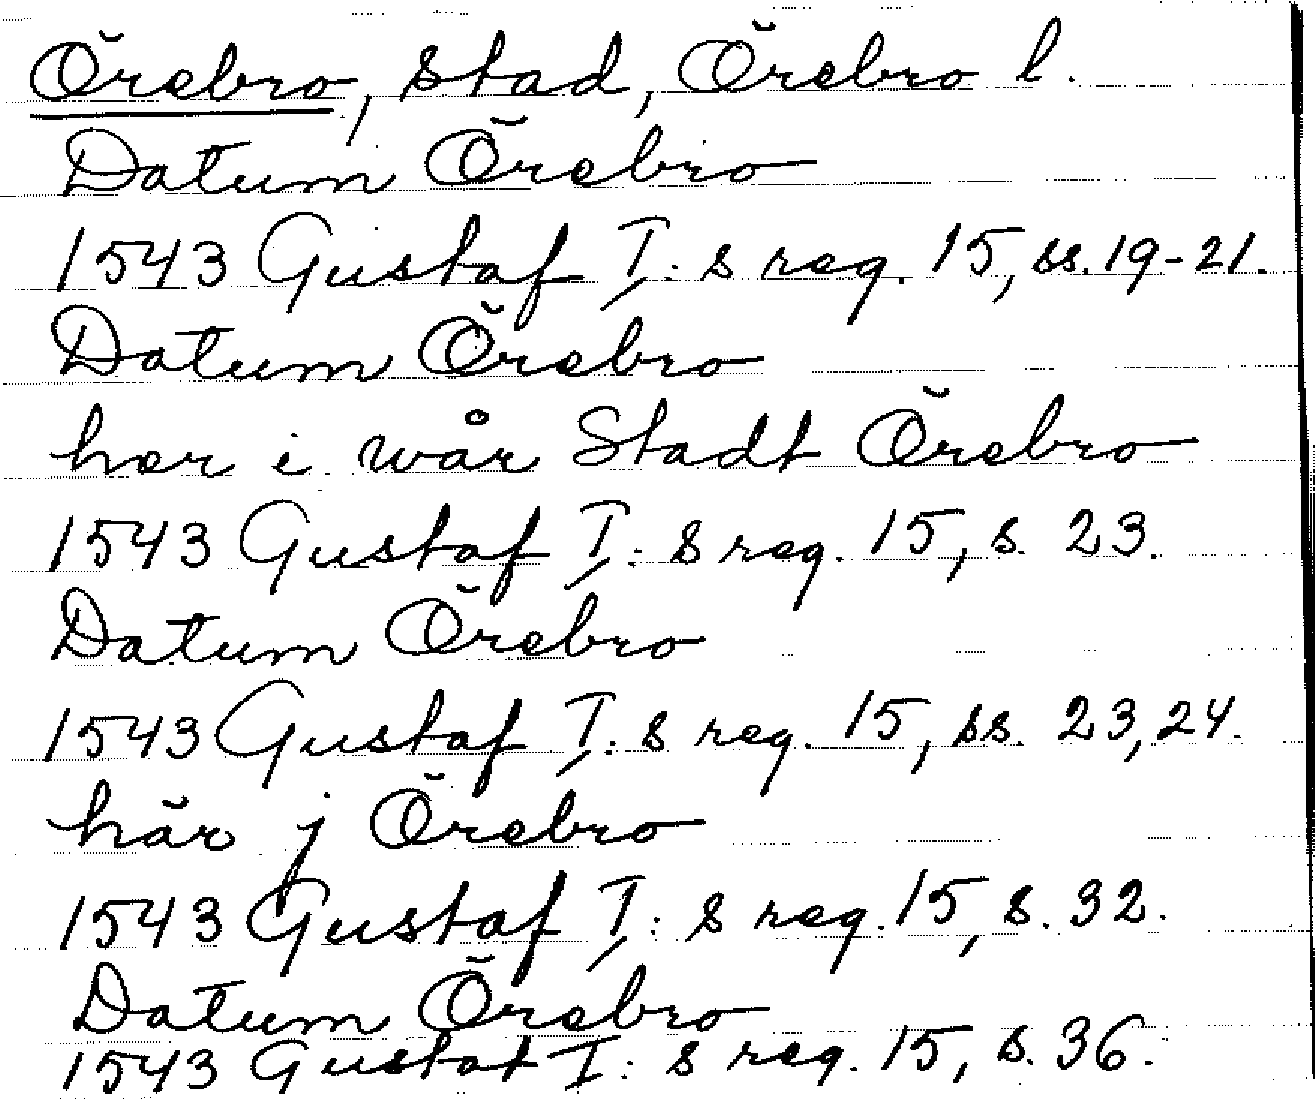 Örebro, stad, Örebro l.
Datum Örebro
1543 Gustaf I:s reg. 15, ss. 19-21.
Datum Örebro
her i wår Stadt Örebro
1543 Gustaf I:s reg. 15, s. 23.
Datum Örebro
1543 Gustaf I:s reg. 15, ss. 23, 24.
här j Örebro
1543 Gustaf I:s reg. 15, s. 32.
Datum Örebro
1543 Gustaf I:s reg. 15, s. 36.